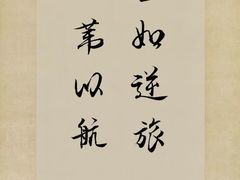 如逆旅
苇以航